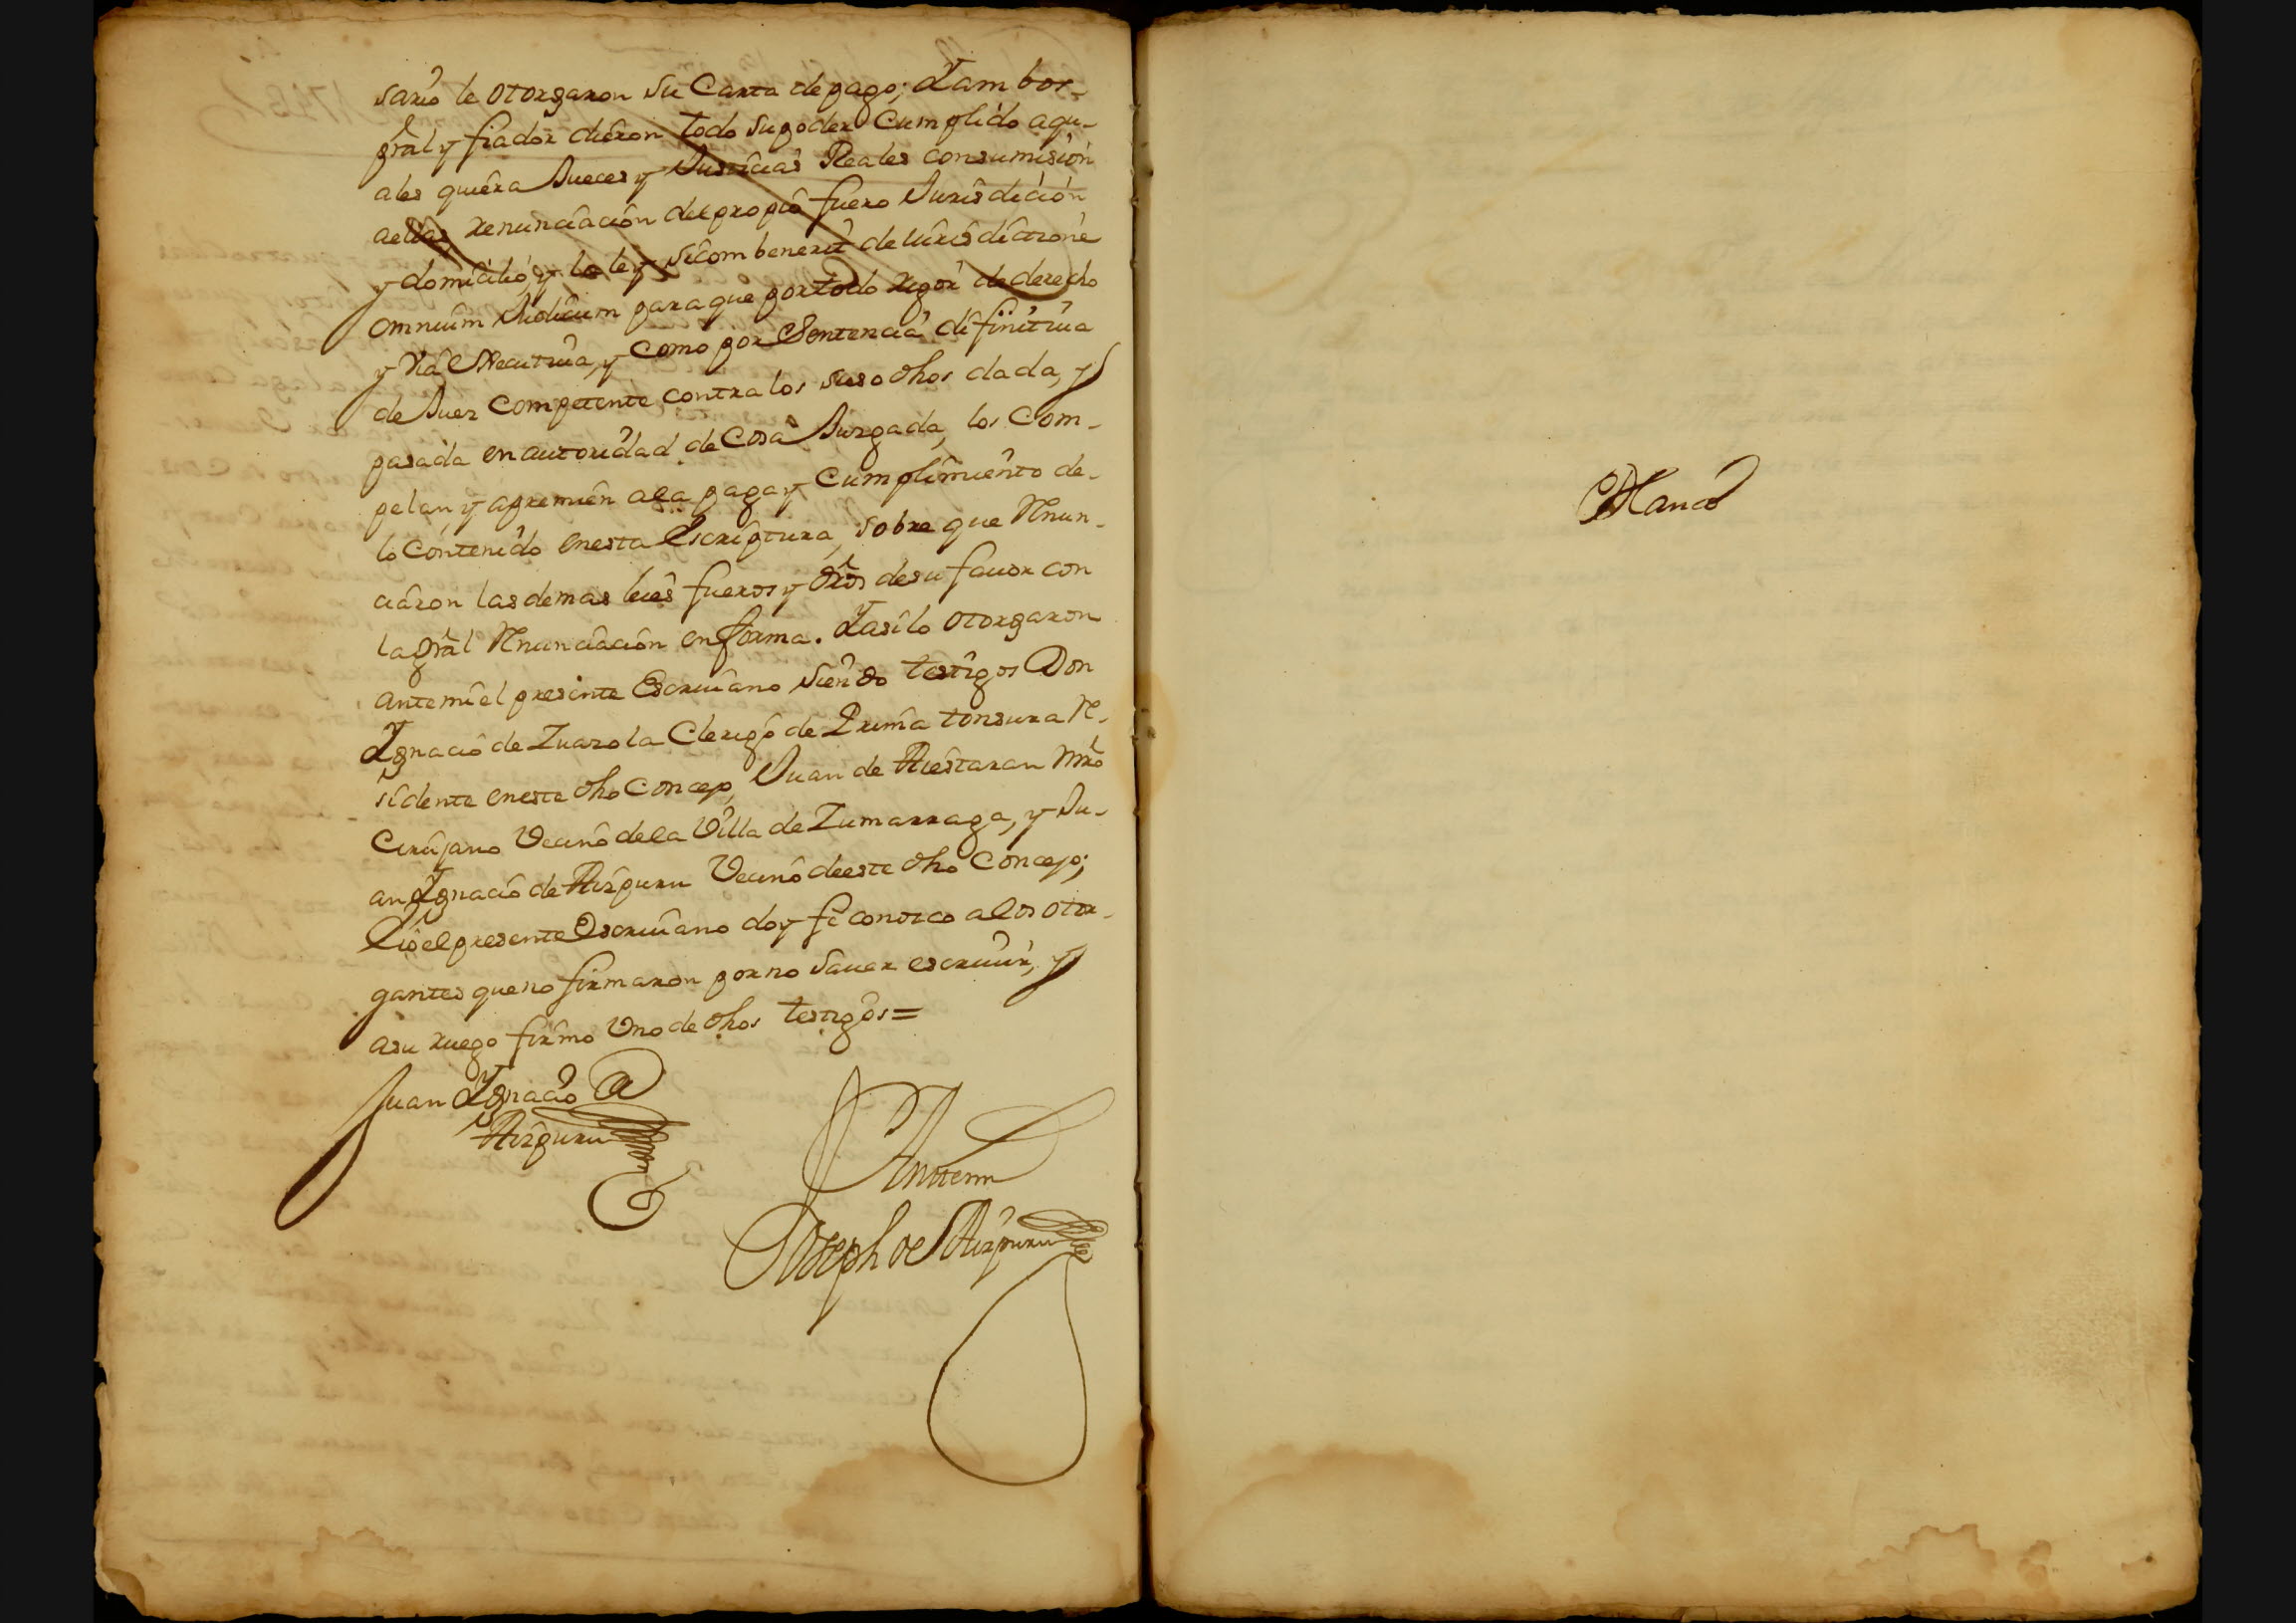 sario le otorgaron su Carta de pago; Yambos
pral y fiador dieron todo su poder Cumplido aqu-
ales quiera Jueces y Justicias Reales consumision
aellas renunciacion del propio fuero Jurisdicion
y domicilio, y la ley sicombenerit de iurisdictione
omnium Judicum para que por todo rigor de derecho
y via executiva, y como por Sentencia difinitiua
de Juez competente contra los suso dhos dada, y
pasada en autoridad de Cosa Juzgada, los Com-
pelan y apremien ala paga y Cumplimiento de-
lo contenido enesta Escriptura, sobre que Renun-
ciaron las demas leies fueros y dros desu fauor con
la gral Renunciacion en forma. Yasilo otorgaron
antemi el presente Escriuano siendo testigos Don
Ygnacio de Zuazola Clerigo de Prima tonsura Re-
sidente eneste dho Concejo, Juan de Aiestaran Mro
Cirujano Vecino dela Villa de Zumarraga, y Ju-
an Ygnacio de Aizpuru Vecino deeste dho Concejo;
E io el presente Escriuano doy fe conozco alos otor-
gantes que no firmaron por no sauer escriuir, y
asu ruego firmo Uno de dhos testigos=
Juan Ygnacio de
Aizpuru
Antemi
Joseph de Aizpuru
Blanco